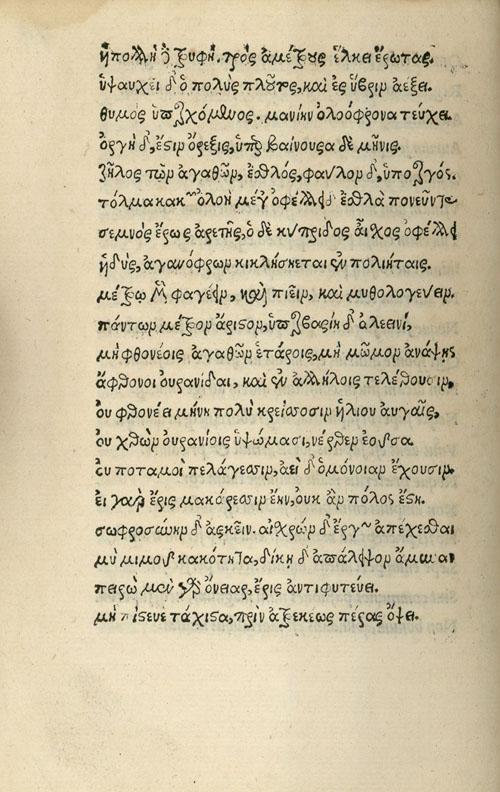 ἡ πολλὴ δὲ τρυφὴ, πρὸς ἀμέτρους ἕλκει ἔρωτας.
ὑψαυχεῖ δ' ὁ πολὺς πλοῦτος, καὶ ἐς ὕβριν ἀέξει.
θυμὸς ὑπερχόμενος, μανίην ὀλοόφρονα τεύχει.
ὀργὴ δ', ἐστὶν ὄρεξις, ὑπερβαίνουσα δὲ μῆνις.
ζῆλος τῶν ἀγαθῶν, ἐσθλὸς, φαύλων δ', ὑπέρογκος.
τόλμα κακῶν ὀλοὴ μέγ' ὀφέλλει δ' ἐσθλὰ πονεῦντα
σεμνὸς ἔρως ἀρετῆς, ὁ δὲ κύπριδος αἶσχος ὀφέλλει
ἡδὺς, ἀγανόφρων κικλήσκεται ἐν πολιήταις.
μέτρῳ μὲν φαγέειν, καὶ πιεῖν, καὶ μυθολογεύειν.
πάντων μέτρον ἄριστον, ὑπερβασίη δ' ἀλεεινή,
μὴ φθονέοις ἀγαθῶν ἑτάροις, μὴ μῶμον ἀνάψῃς
ἄφθονοι οὐρανίδαι, καὶ ἐν ἀλλήλοις τελέθουσιν,
οὐ φθονέει μήνη πολὺ κρείσσοσιν ἡλίου αὐγαῖς,
οὐ χθὼν οὐρανίοις ὑψώμασι, νέρθεν ἐοῦσα
οὐ ποταμοὶ πελάγεσσιν, ἀεὶ δ' ὁμόνοιαν ἔχουσιν.
εἰ γὰρ ἔρις μακάρεσσιν ἔην, οὐκ ἂν πόλος ἔστη.
σωφροσύνην δ' ἀσκεῖν. αἰσχρῶν δ' ἔργων ἀπέχεσθαι
μὴ μιμοῦ κακότητα, δίκῃ δ' ἀπάλειψον ἄμυναν
πειθὼ μὲν γὰρ ὄνειαρ, ἔρις ἀντιφυτεύει.
μὴ πίστευε τάχιστα, πρὶν ἀτρεκέως πέρας ὄψει.